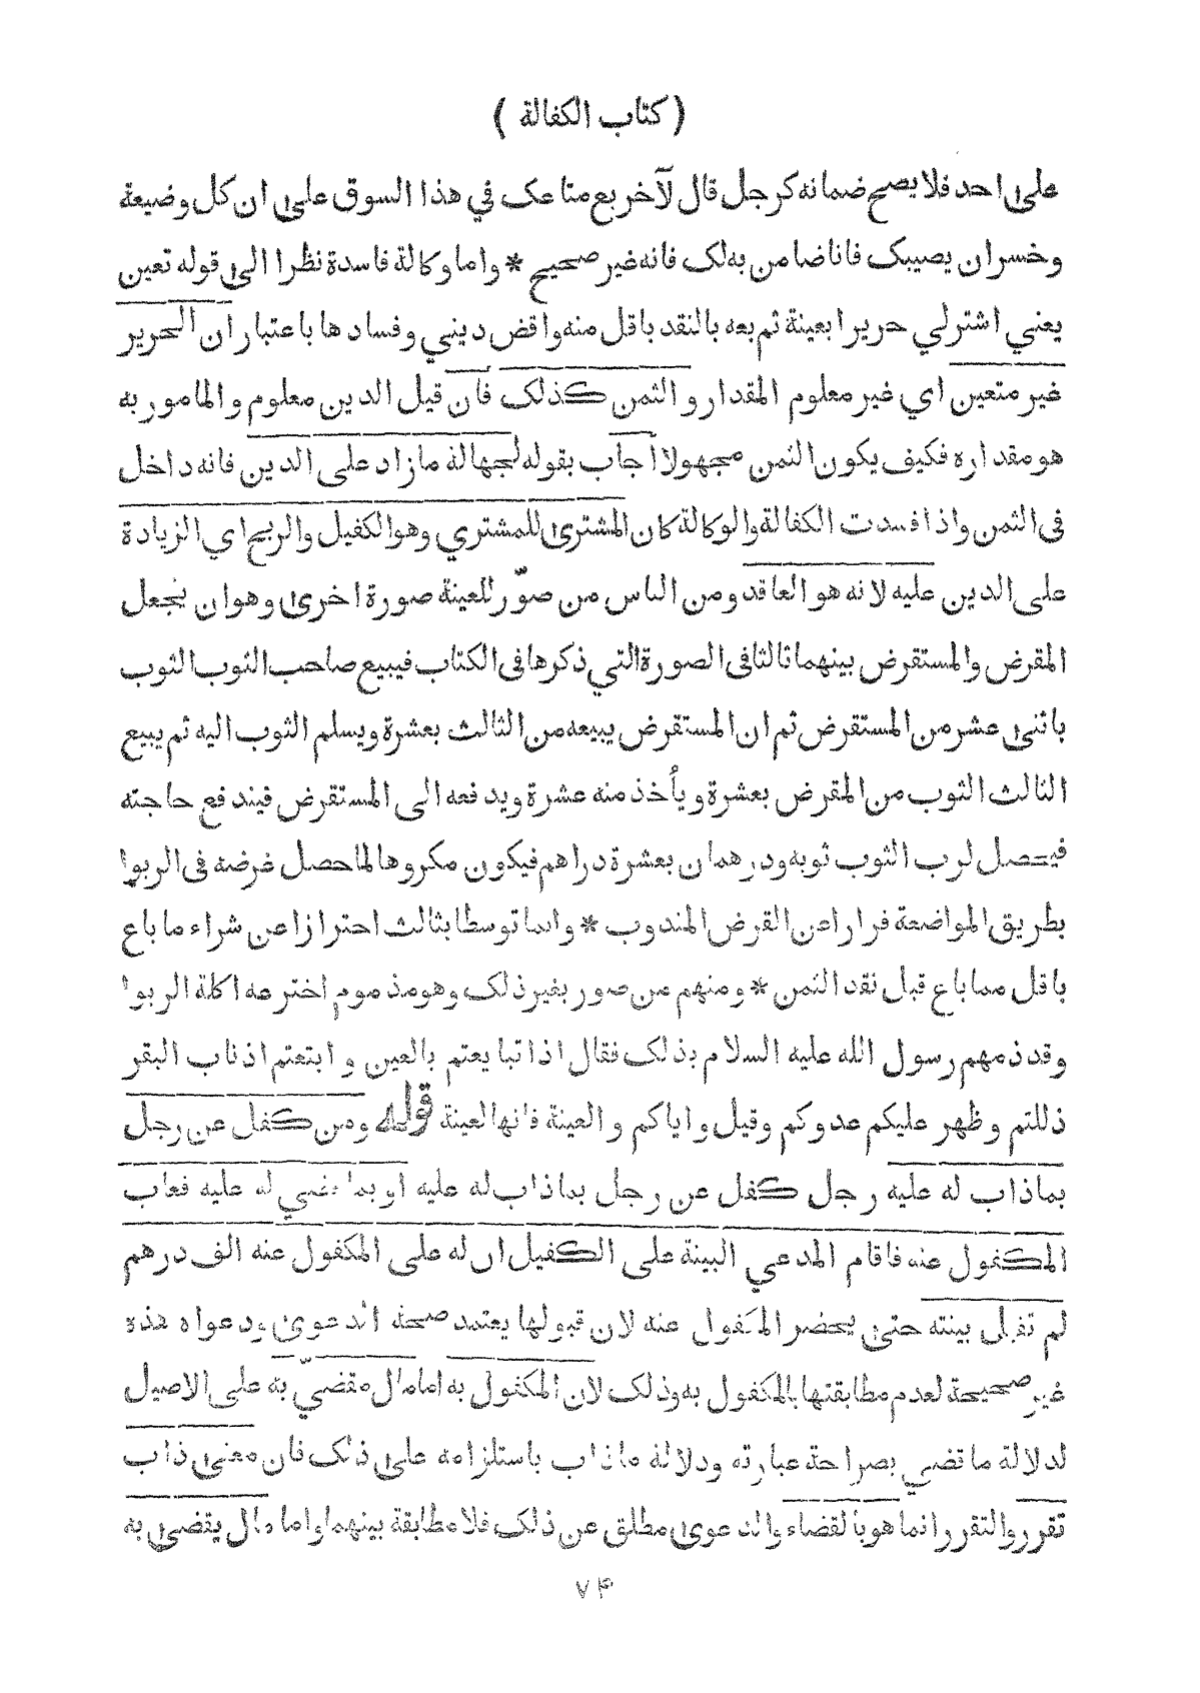 ( كتاب الكفالة )
على احد فلا يصح ضمانه كرجل قال لآخر بع متاعك في هذا السوق على ان كل وضيعة
وخسران يصيبك فانا ضامن به لك فانه غير صحيح * واما وكالة فاسدة نظرا الى قوله تعين
يعني اشترلي حريرا بعينة ثم بعه بالنقد باقل منه واقض ديني وفسادها باعتبار ان الحرير
غير متعين اي غير معلوم المقدار والثمن كذلك فان قيل الدين معلوم والمامور به
هو مقداره فكيف يكون الثمن مجهولا أجاب بقوله لجهالة مازاد على الدين فانه داخل
فى الثمن واذا فسدت الكفالة والوكالة كان المشترى للمشتري وهو الكفيل والربح اي الزيادة
على الدين عليه لانه هو العاقد ومن الناس من صوّر للعينة صورة اخرى وهو ان يجعل
المقرض والمستقرض بينهما ثالثا فى الصورة التي ذكرها فى الكتاب فيبيع صاحب الثوب الثوب
باثنى عشر من المستقرض ثم ان المستقرض يبيعه من الثالث بعشرة ويسلم الثوب اليه ثم يبيع
الثالث الثوب من المقرض بعشرة ويأخذ منه عشرة ويدفعه الى المستقرض فيندفع حاجته
فيحصل لرب الثوب ثوبه ودرهمان بعشرة دراهم فيكون مكروها لما حصل غرضه فى الربوا
بطريق المواضعة فرارا عن القرض المندوب * وانما توسطا بثالث احترازا عن شراء ما باع
باقل مما باع قبل نقد الثمن * ومنهم من صور بغير ذلك وهو مذموم اخترعه اكلة الربوا
وقد ذمهم رسول الله عليه السلام بذلك فقال اذا تبايعتم بالعين و ابتعتم اذناب البقر
ذللتم وظهر عليكم عدوكم وقيل واياكم والعينة فانها لعينة قوله ومن كفل عن رجل
بماذاب له عليه رجل كفل عن رجل بماذاب له عليه او بما قضي له عليه فغاب
المكفول عنه فاقام المدعي البينة على الكفيل ان له على المكفول عنه الف درهم
لم تقبل بينته حتى يحضر المكفول عنه لان قبولها يعتمد صحة الدعوى ودعواه هذه
غير صحيحة لعدم مطابقتها بالمكفول به وذلك لان المكفول به اما مال مقضيّ به على الاصيل
لدلالة ما قضي بصراحة عبارته ودلالة ماذاب باستلزامه على ذلك فان معنى ذاب
تقرر والتقرر انما هو بالقضاء والدعوى مطلق عن ذلك فلا مطابقة بينهما واما مال يقضى به
٧٤